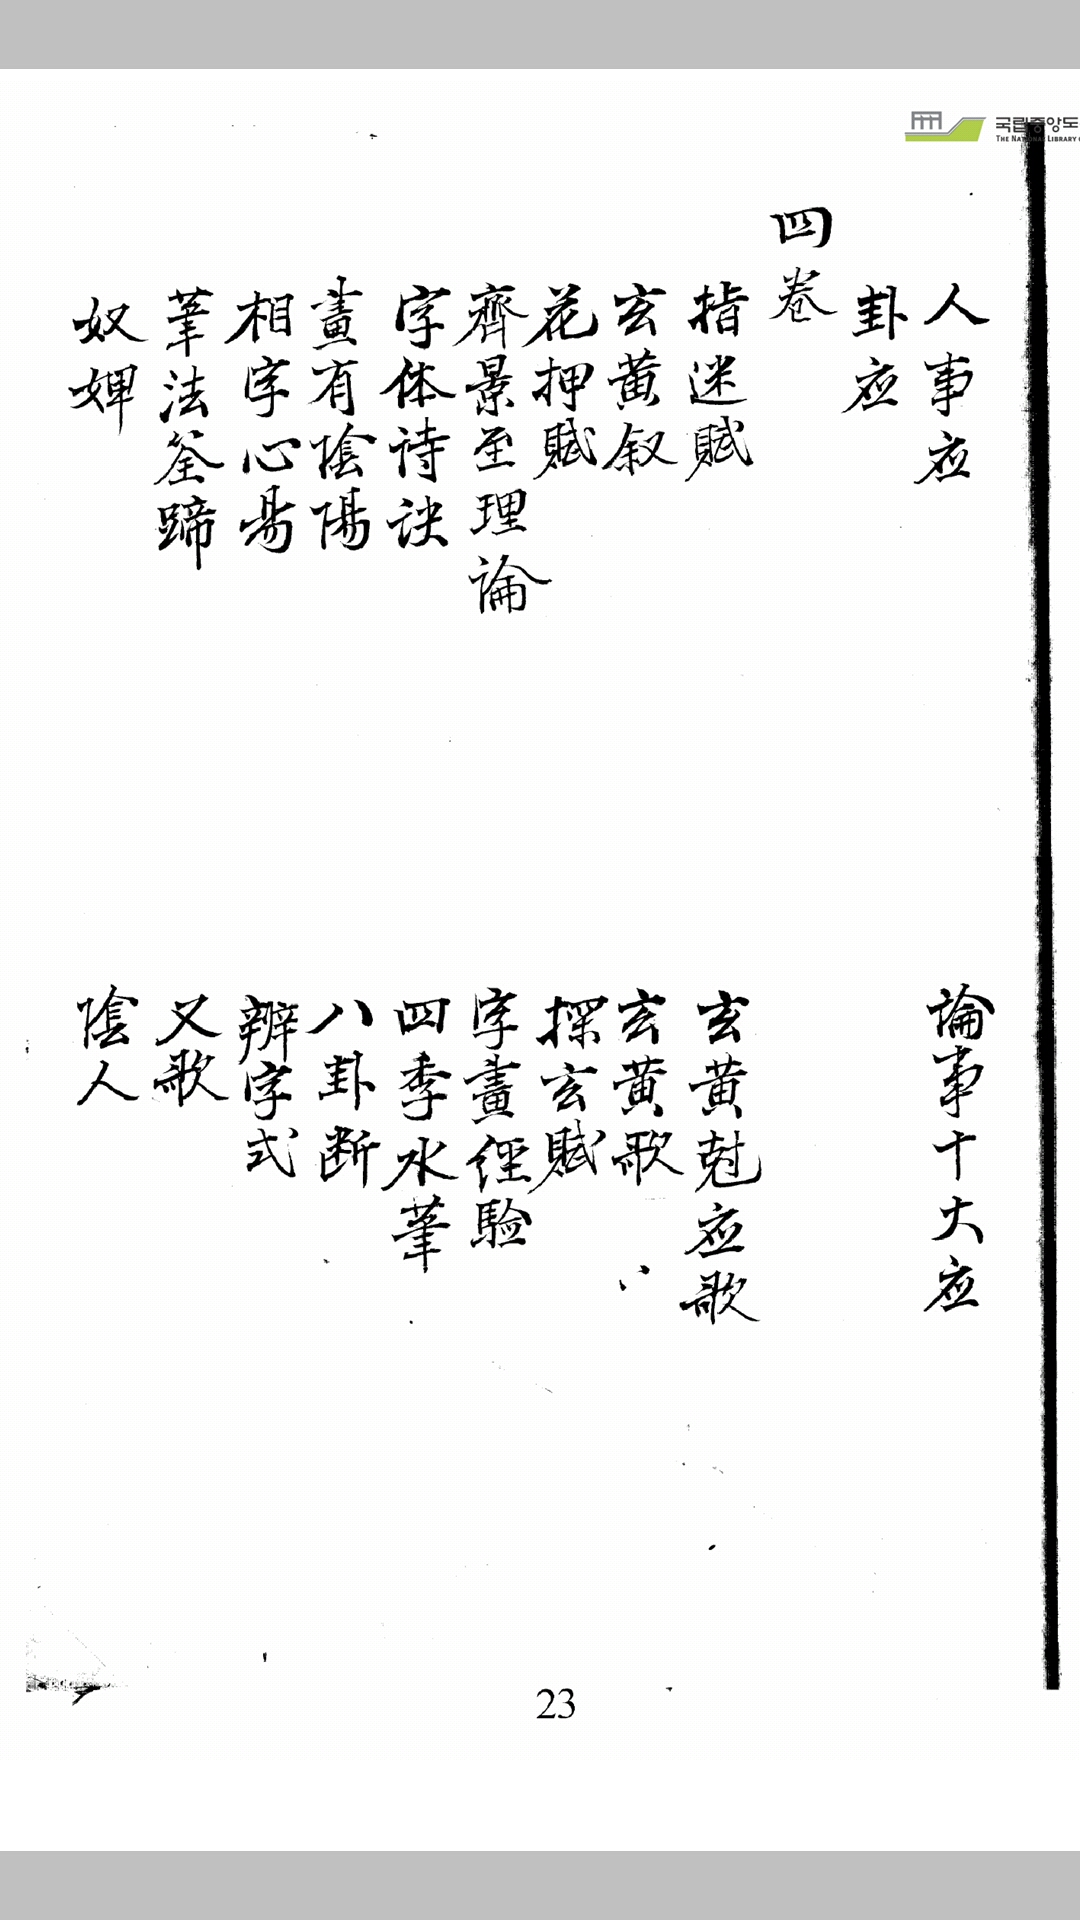 국립중앙도
THE NATIONAL LIBRARY
人事应
論事十大应
卦应
四卷
指迷賦
玄黄尅应歌
玄黄叙
玄黄歌
花押賦
探玄賦
齊景至理論
字畫經驗
字体诗诀
四季水筆
畫有陰陽
八卦断
相字心易
辨字式
筆法筌蹄
又歌
奴婢
陰人
23